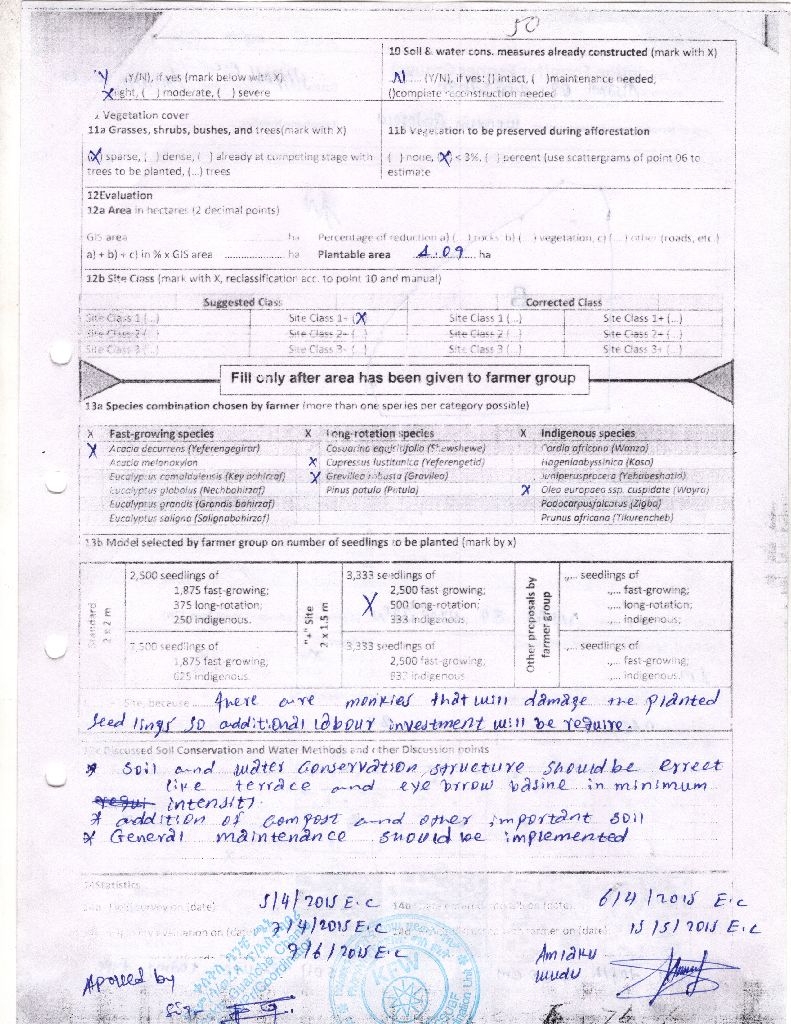 50
10 Soil & water cons. measures already constructed (mark with X)
Y (Y/N), if yes (mark below with X)
N (Y/N), if yes: () intact, ( )maintenance needed,
X light, ( ) moderate, ( ) severe
()complete reconstruction needed
Vegetation cover
11a Grasses, shrubs, bushes, and trees(mark with X)
11b Vegetation to be preserved during afforestation
(X) sparse, ( ) dense, ( ) already at competing stage with
trees to be planted, (...) trees
( ) none, (X) < 3%, ( ) percent (use scattergrams of point 06 to
estimate
12Evaluation
12a Area in hectares (2 decimal points)
GIS area ha Percentage of reduction a) ( ) rocks b) ( ) vegetation, c) ( ) other (roads, etc.)
a) + b) + c) in % x GIS area .................... ha Plantable area 4.09 ha
12b Site Class (mark with X, reclassification acc. to point 10 and manual)
Suggested Class Corrected Class
Site Class 1 (...) Site Class 1- (X Site Class 1 (...) Site Class 1+ (...)
Site Class 2 ( ) Site Class 2+ ( ) Site Class 2 ( ) Site Class 2+ (...)
Site Class 3 (...) Site Class 3- ( ) Site Class 3 (...) Site Class 3+ (...)
Fill only after area has been given to farmer group
13a Species combination chosen by farmer (more than one species per category possible)
X Fast-growing species X Long-rotation species X Indigenous species
X Acacia decurrens (Yeferengegirar) Casuarina equisitifolia (Shewshewe) Cordia africana (Wanza)
Acacia melanoxylon X Cupressus lustitanica (Yeferengetid) Hageniaabyssinica (Koso)
Eucalyptus camaldulensis (Key bahirzaf) X Grevillea robusta (Gravilea) Juniperusprocera (Yehabeshatid)
Eucalyptus globolus (Nechbahirzaf) Pinus patula (Patula) X Olea europaea ssp. cuspidate (Wayra)
Eucalyptus grandis (Grandis bahirzaf) Podocarpusfalcatus (Zigba)
Eucalyptus saligna (Salignabahirzaf) Prunus africana (Tikurencheb)
13b Model selected by farmer group on number of seedlings to be planted (mark by x)
Standard
2 x 2 m
2,500 seedlings of
1,875 fast-growing;
375 long-rotation;
250 indigenous.
"+" Site
2 x 1.5 m
3,333 seedlings of
2,500 fast growing;
X 500 long-rotation;
333 indigenous.
Other proposals by
farmer group
,,... seedlings of
,,... fast-growing;
,,... long-rotation;
,,... indigenous;
2,500 seedlings of
1,875 fast-growing;
625 indigenous.
3,333 seedlings of
2,500 fast-growing;
833 indigenous.
,,... seedlings of
,,... fast-growing;
,,... indigenous.
Site, because there are monkies that will damage the planted
seed lings so additional labour investment will be require.
Discussed Soil Conservation and Water Methods and other Discussion points
* Soil and water Conservation structure should be errect
like terrace and eye brow basine in minimum
intensity.
* addition of compost and other important soil
* General maintenance should be implemented
Statistics
5/4/2015 E.C
6/4/2015 E.C
7/4/2015 E.C
15/5/2015 E.C
9/6/2015 E.C
Aproved by
KFW